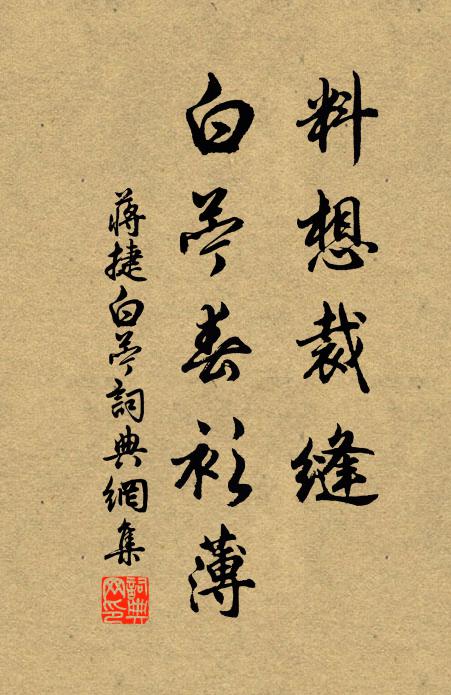 料想裁縫
白苧春衫薄
蔣捷白苧詞典網集
詞典网印